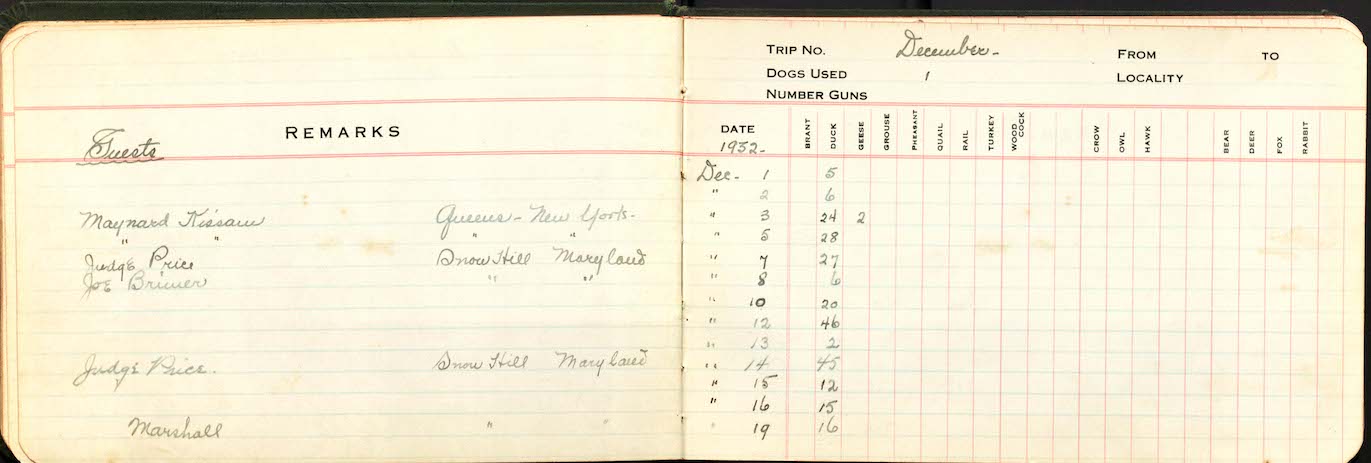 REMARKS
Guests
Maynard Kissam Queens - New York-
" " " "
Judge Price Snow Hill Maryland
Joe Brimer " "
Judge Price. Snow Hill Maryland
Marshall " "
TRIP No. December- FROM TO
DOGS USED 1 LOCALITY
NUMBER GUNS
DATE BRANT DUCK GEESE GROUSE PHEASANT QUAIL RAIL TURKEY WOOD COCK CROW OWL HAWK BEAR DEER FOX RABBIT
1932-
Dec- 1 5
" 2 6
" 3 24 2
" 5 28
" 7 27
" 8 6
" 10 20
" 12 46
" 13 2
" 14 45
" 15 12
" 16 15
" 19 16